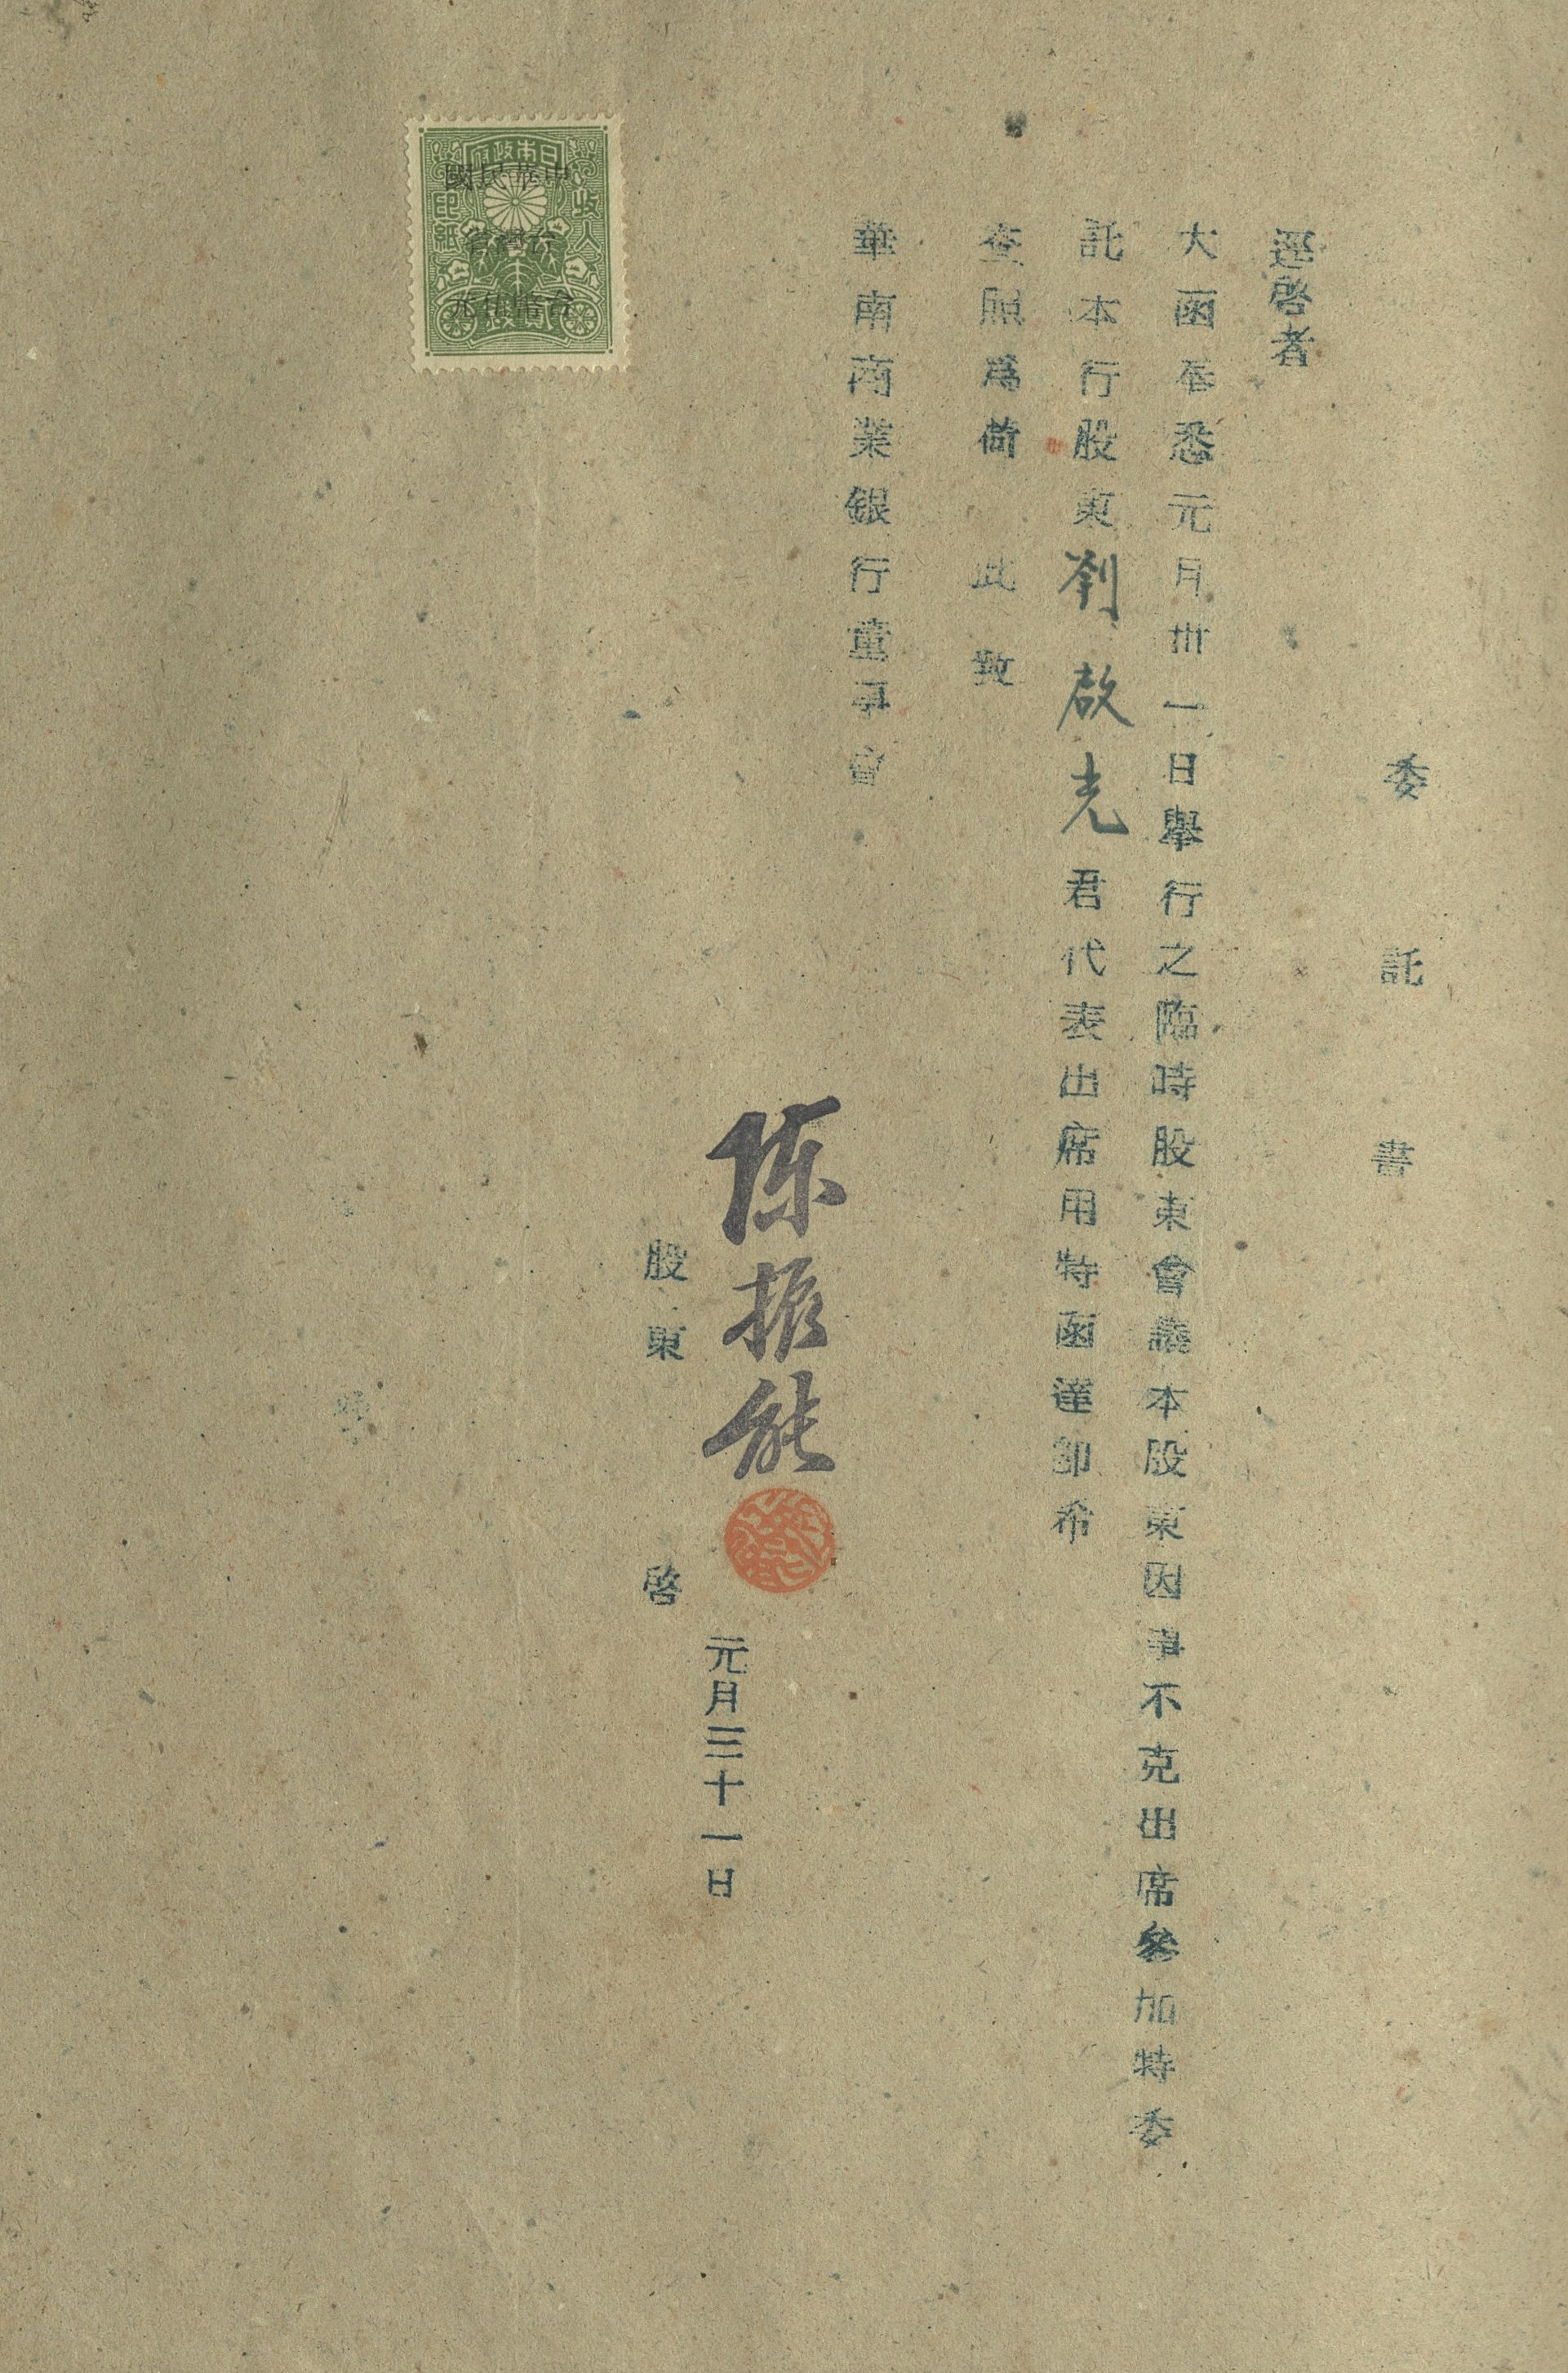 委託書
逕啓者
大函奉悉元月卅一日舉行之臨時股東會議本股東因事不克出席參加特委
託本行股東劉啟光君代表出席用特函達卽希
查照爲荷　此致
華南商業銀行董事會
陳振能
元月三十一日
股東　啓
日本政府
收入
印紙
中華民國
台灣省